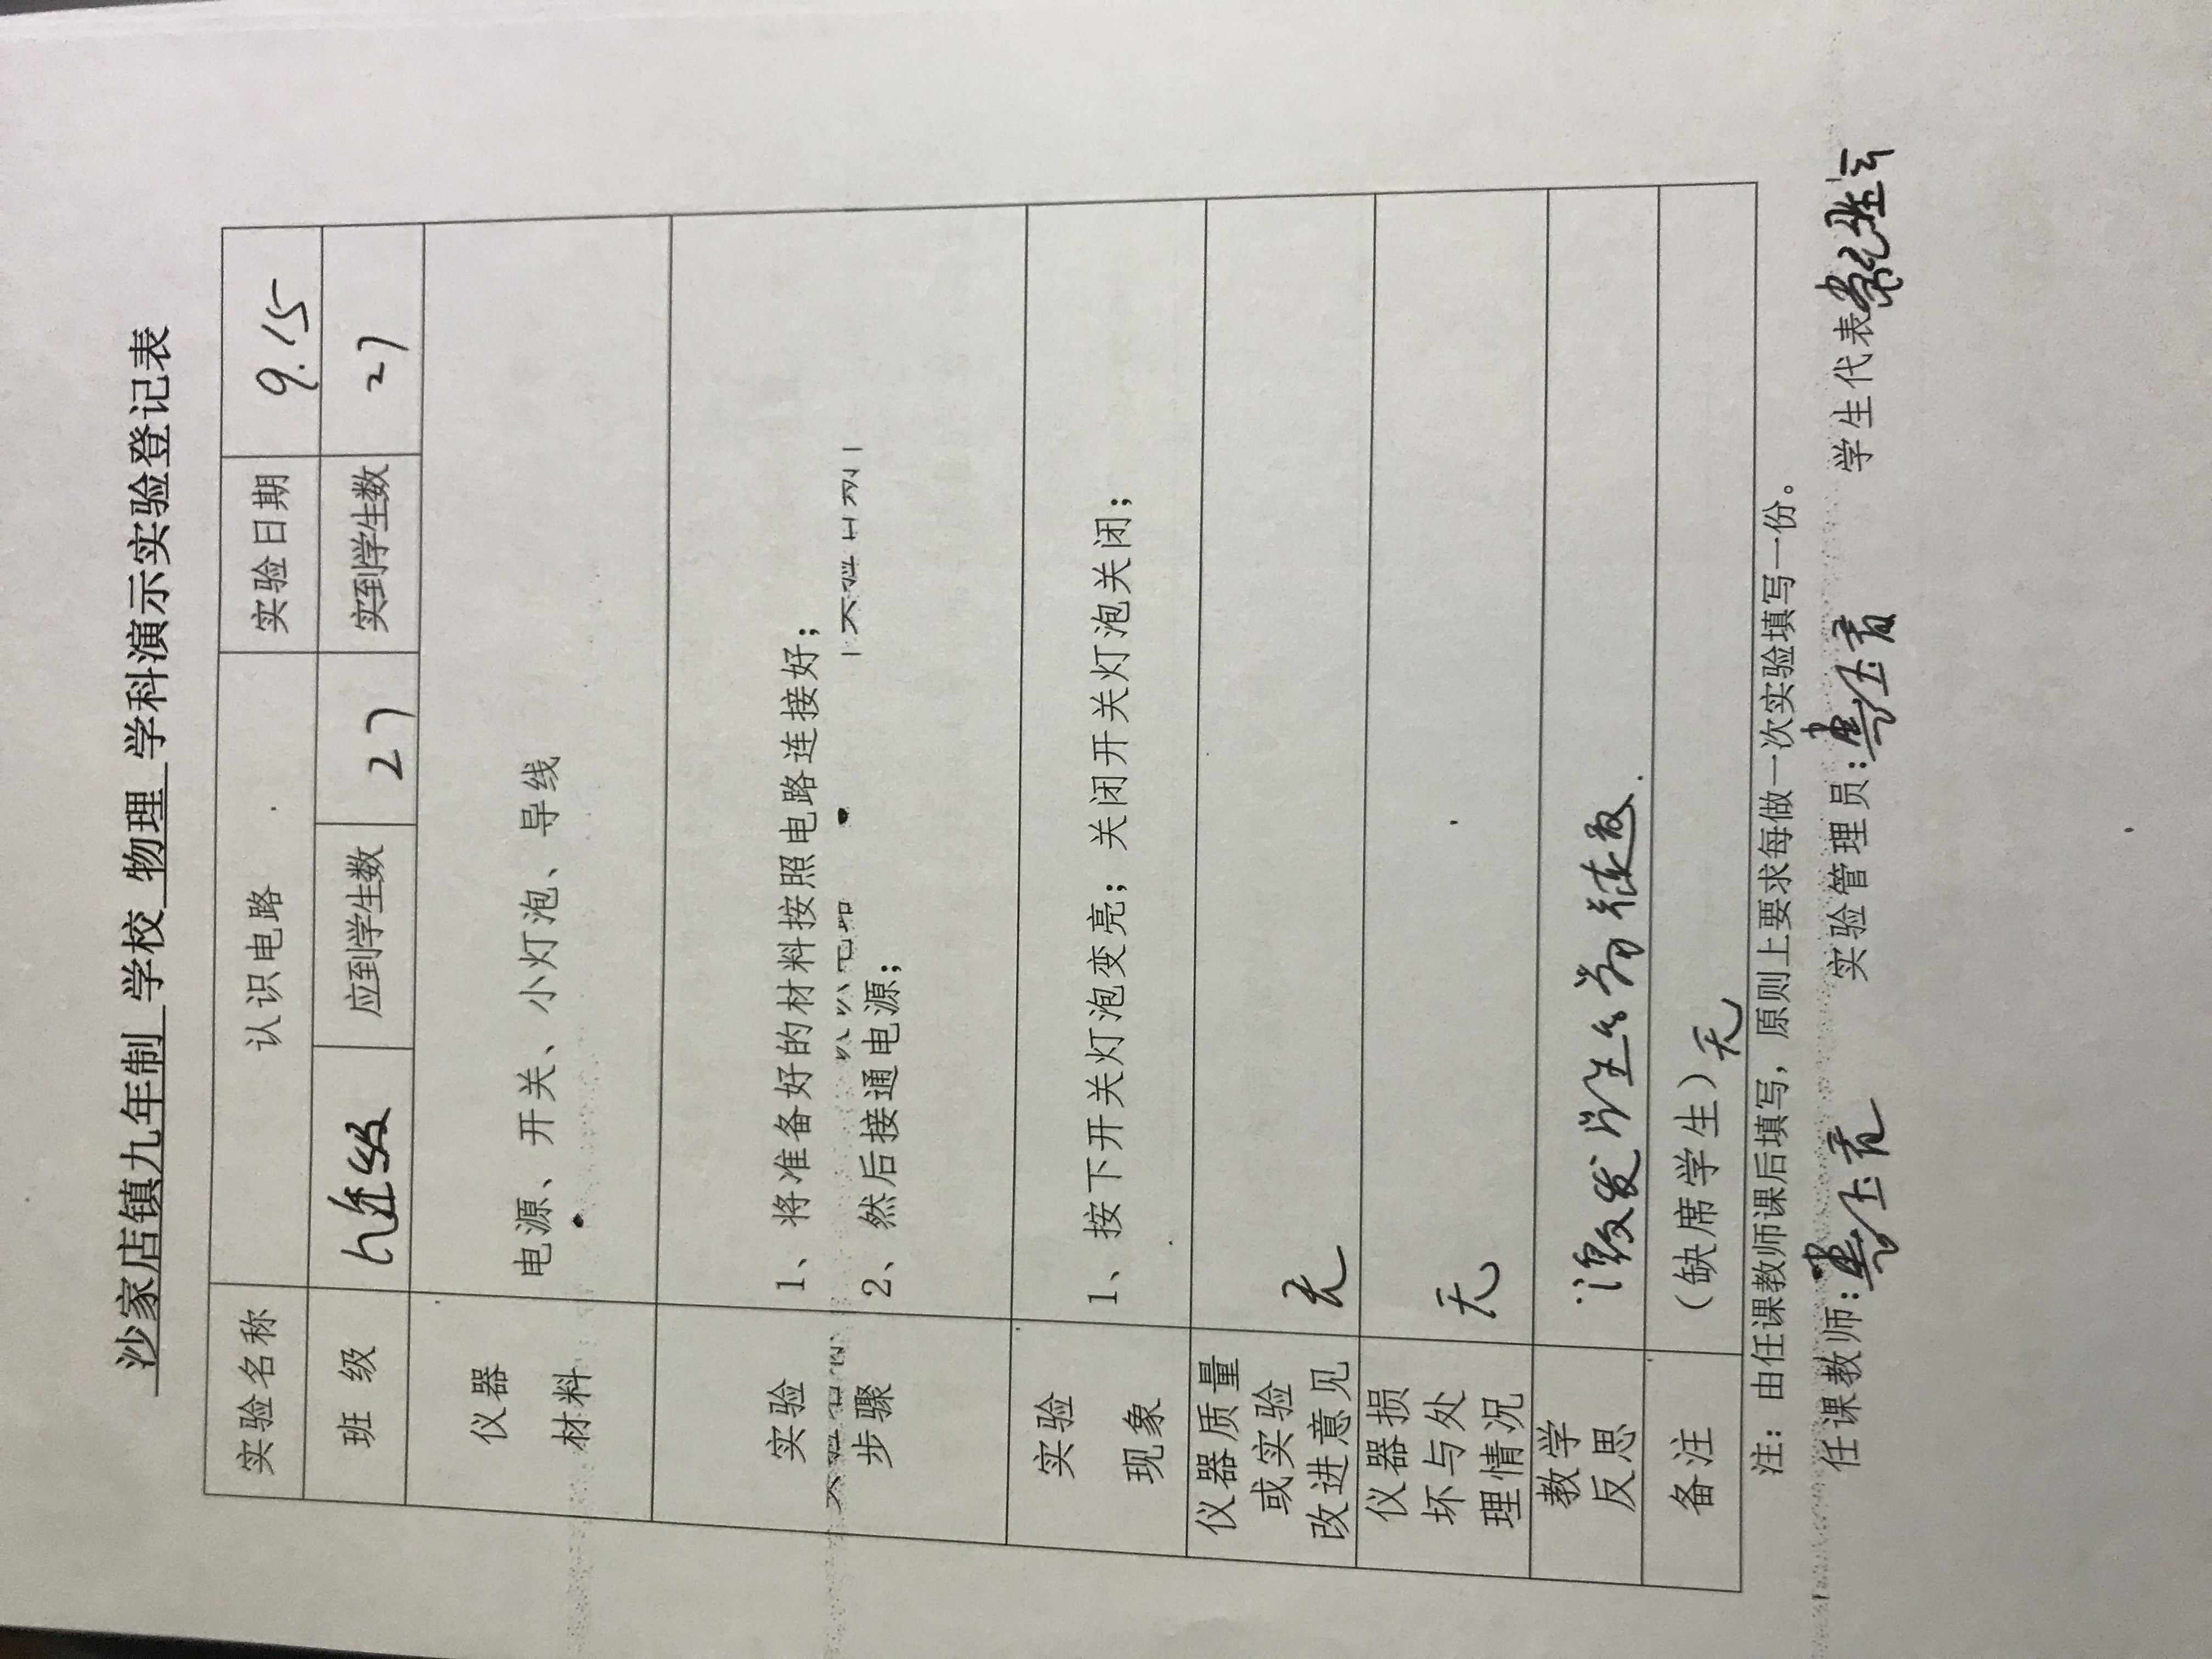 沙家店镇九年制 学校 物理 学科演示实验登记表
实验名称 认识电路 实验日期 9.15
班 级 九年级 应到学生数 27 实到学生数 27
仪器
材料
电源、开关、小灯泡、导线
实验
步骤
1、将准备好的材料按照电路连接好;
2、然后接通电源;
实验
现象
1、按下开关灯泡变亮; 关闭开关灯泡关闭;
仪器质量
或实验
改进意见
无
仪器损
坏与处
理情况
无
教学
反思
激发学生学习兴趣.
备注 (缺席学生) 无
注: 由任课教师课后填写, 原则上要求每做一次实验填写一份。
任课教师: 实验管理员: 学生代表